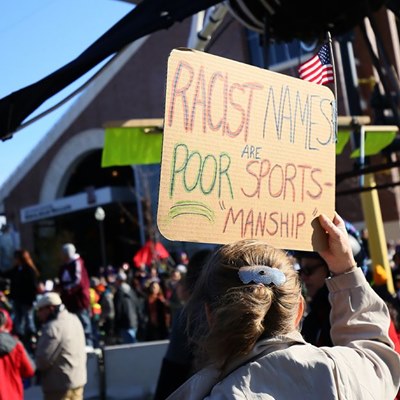 RACIST NAMES
ARE
POOR SPORTS-
"MANSHIP"